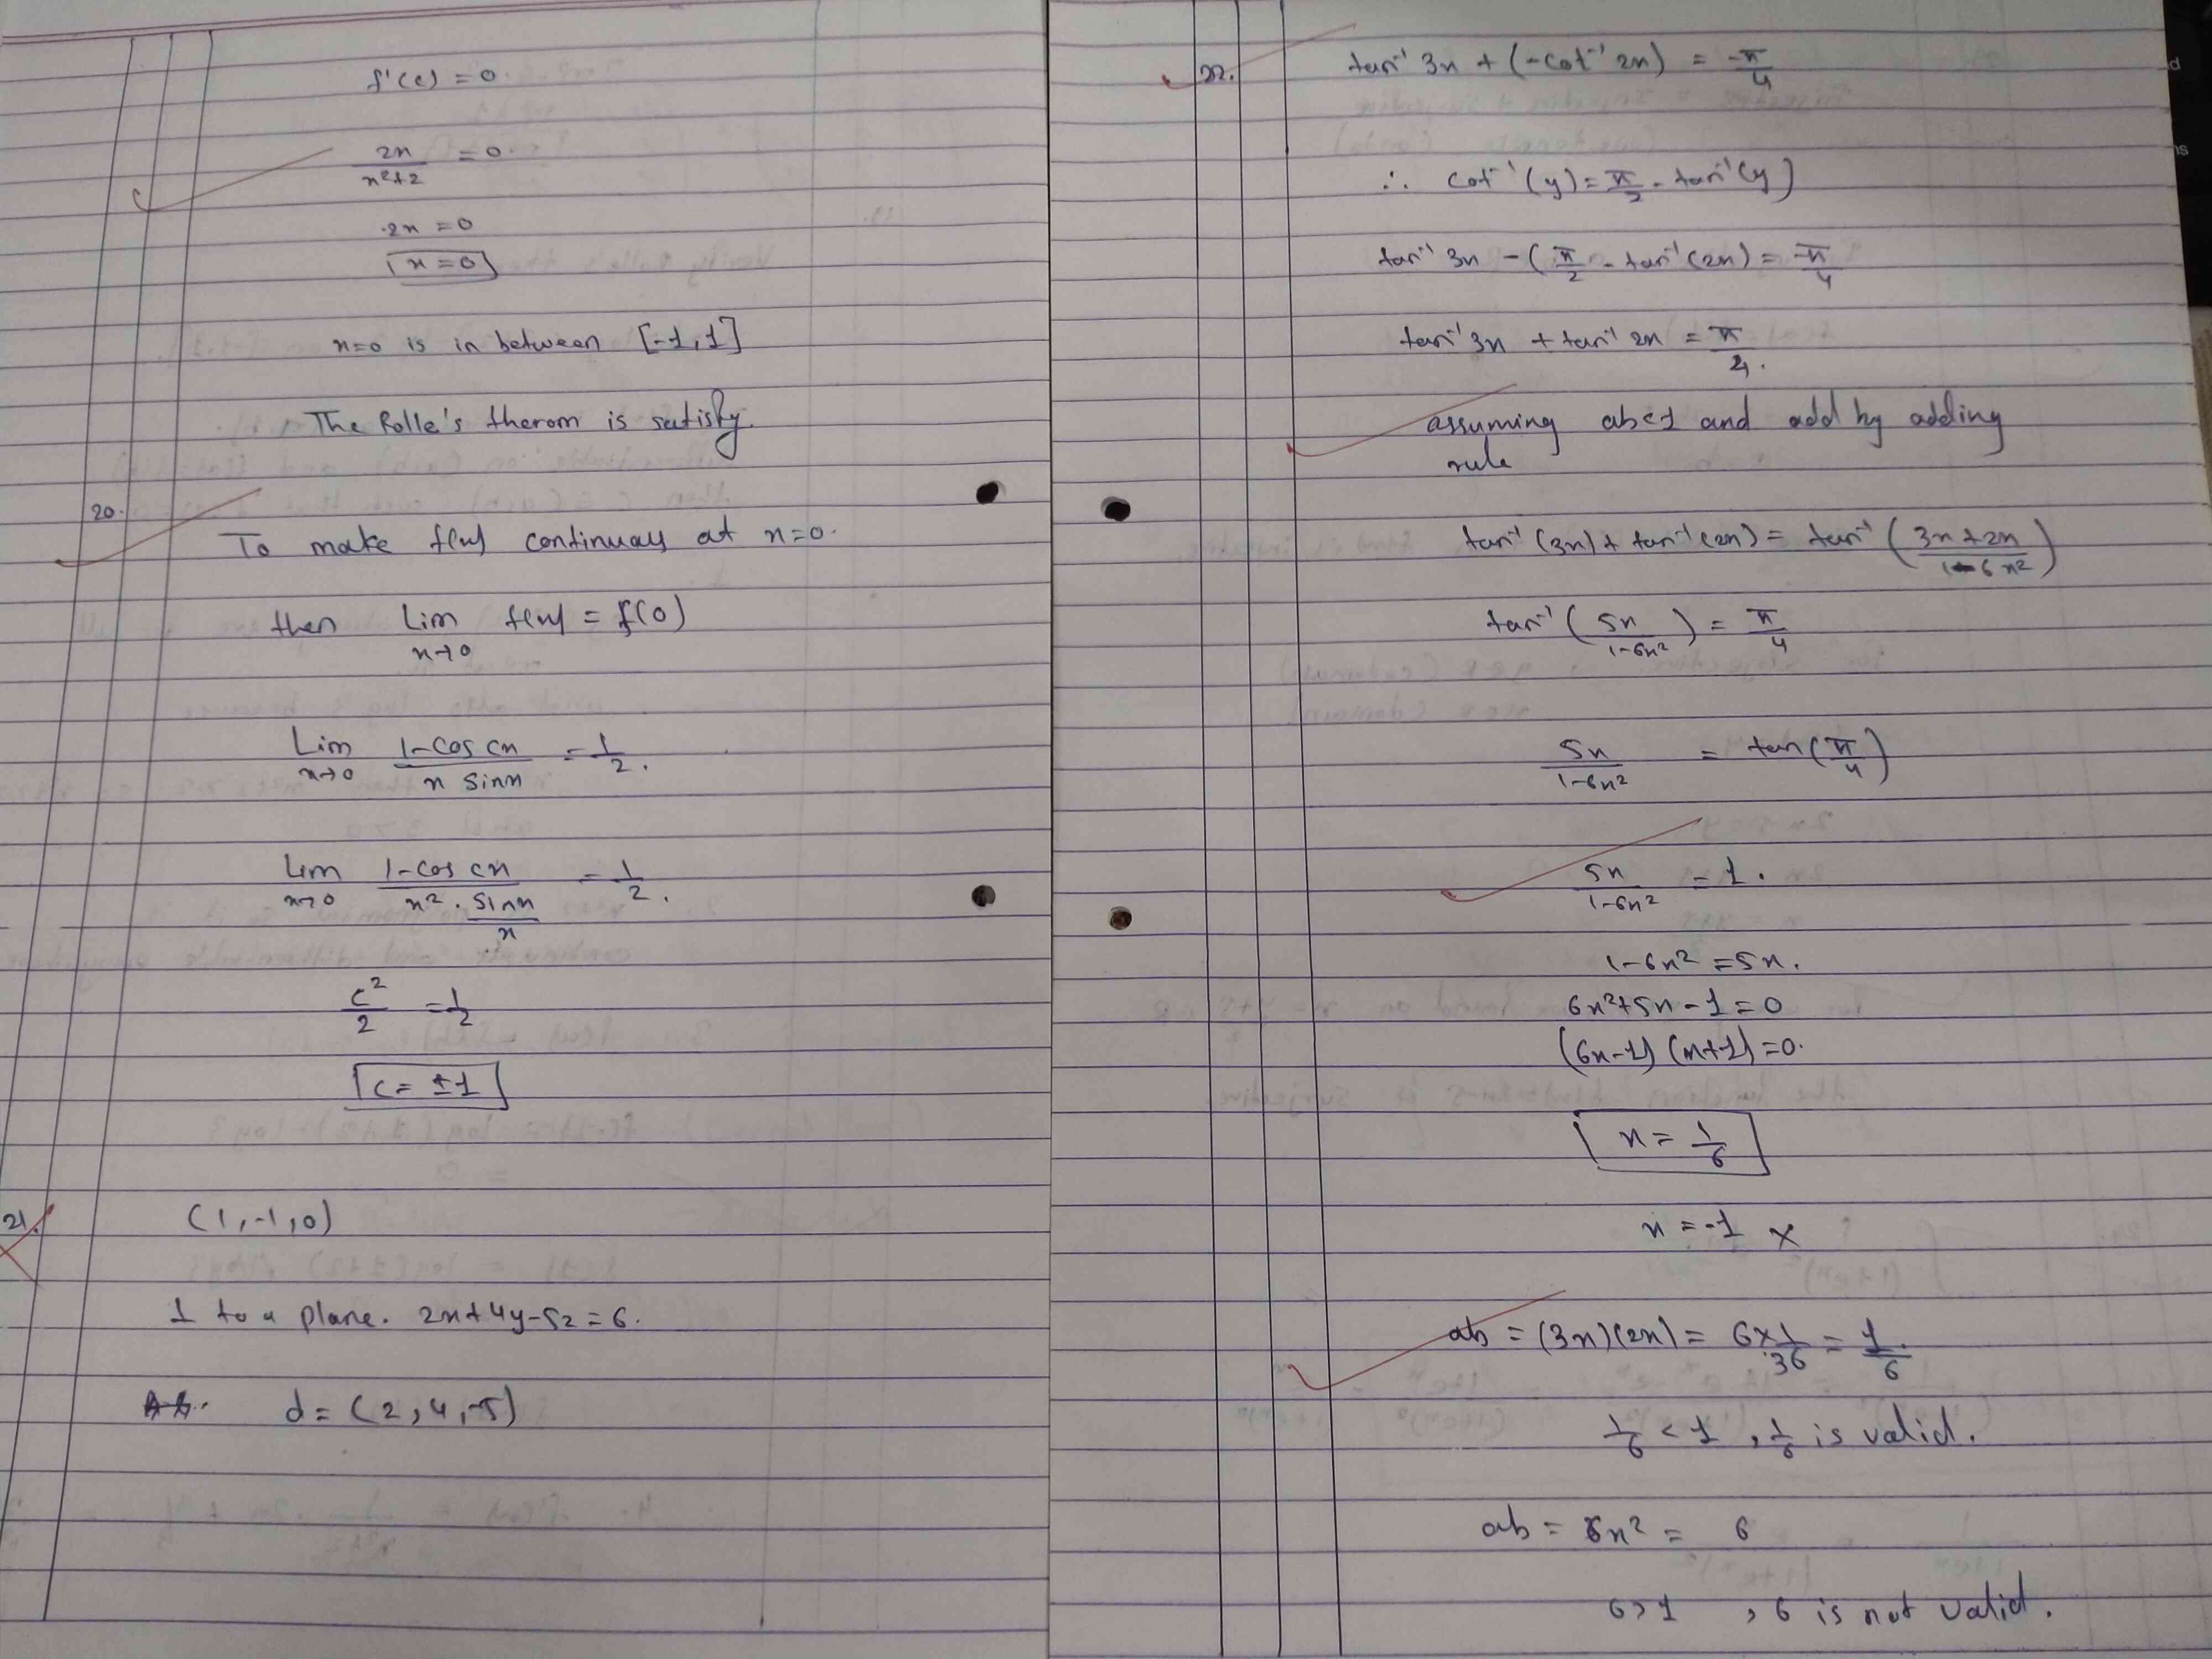 f'(c) = 0
2x/(x²+2) = 0.
2x = 0
x = 0
x=0 is in between [-1, 1]
The Rolle's therom is satisfy.
20.
To make f(x) continuous at x=0.
then Lim x→0 f(x) = f(0)
Lim x→0 (1-cos cx)/(x sinx) = 1/2.
Lim x→0 (1-cos cx)/(x² . sinx/x) = 1/2.
c²/2 = 1/2
c = ±1
21.
(1, -1, 0)
⊥ to a plane. 2x+4y-5z=6.
d = (2, 4, -5)
22. tan⁻¹ 3x + (-cot⁻¹ 2x) = -π/4
∴ cot⁻¹(y) = π/2 - tan⁻¹(y)
tan⁻¹ 3x - (π/2 - tan⁻¹(2x) = -π/4
tan⁻¹ 3x + tan⁻¹ 2x = π/4.
assuming ab<1 and add by adding
rule
tan⁻¹(3x) + tan⁻¹(2x) = tan⁻¹((3x+2x)/(1-6x²))
tan⁻¹(5x/(1-6x²)) = π/4
5x/(1-6x²) = tan(π/4)
5x/(1-6x²) = 1.
1-6x² = 5x.
6x²+5x-1=0
(6x-1)(x+1)=0.
x = 1/6
x = -1 ×
ab = (3x)(2x) = 6×1/36 = 1/6.
1/6 < 1, 1/6 is valid.
ab = 6x² = 6
6>1, 6 is not valid.